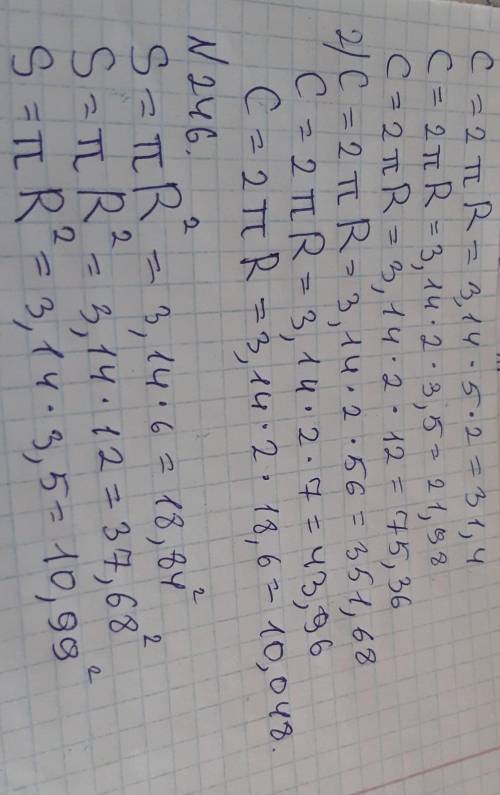 C = 2 π R = 3,14 · 5 · 2 = 31,4
C = 2 π R = 3,14 · 2 · 3,5 = 21,98
C = 2 π R = 3,14 · 2 · 12 = 75,36
2) C = 2 π R = 3,14 · 2 · 56 = 351,68
C = 2 π R = 3,14 · 2 · 7 = 43,96
C = 2 π R = 3,14 · 2 · 18,6 = 10,048.
N 246.
S = π R² = 3,14 · 6 = 18,84²
S = π R² = 3,14 · 12 = 37,68²
S = π R² = 3,14 · 3,5 = 10,99²